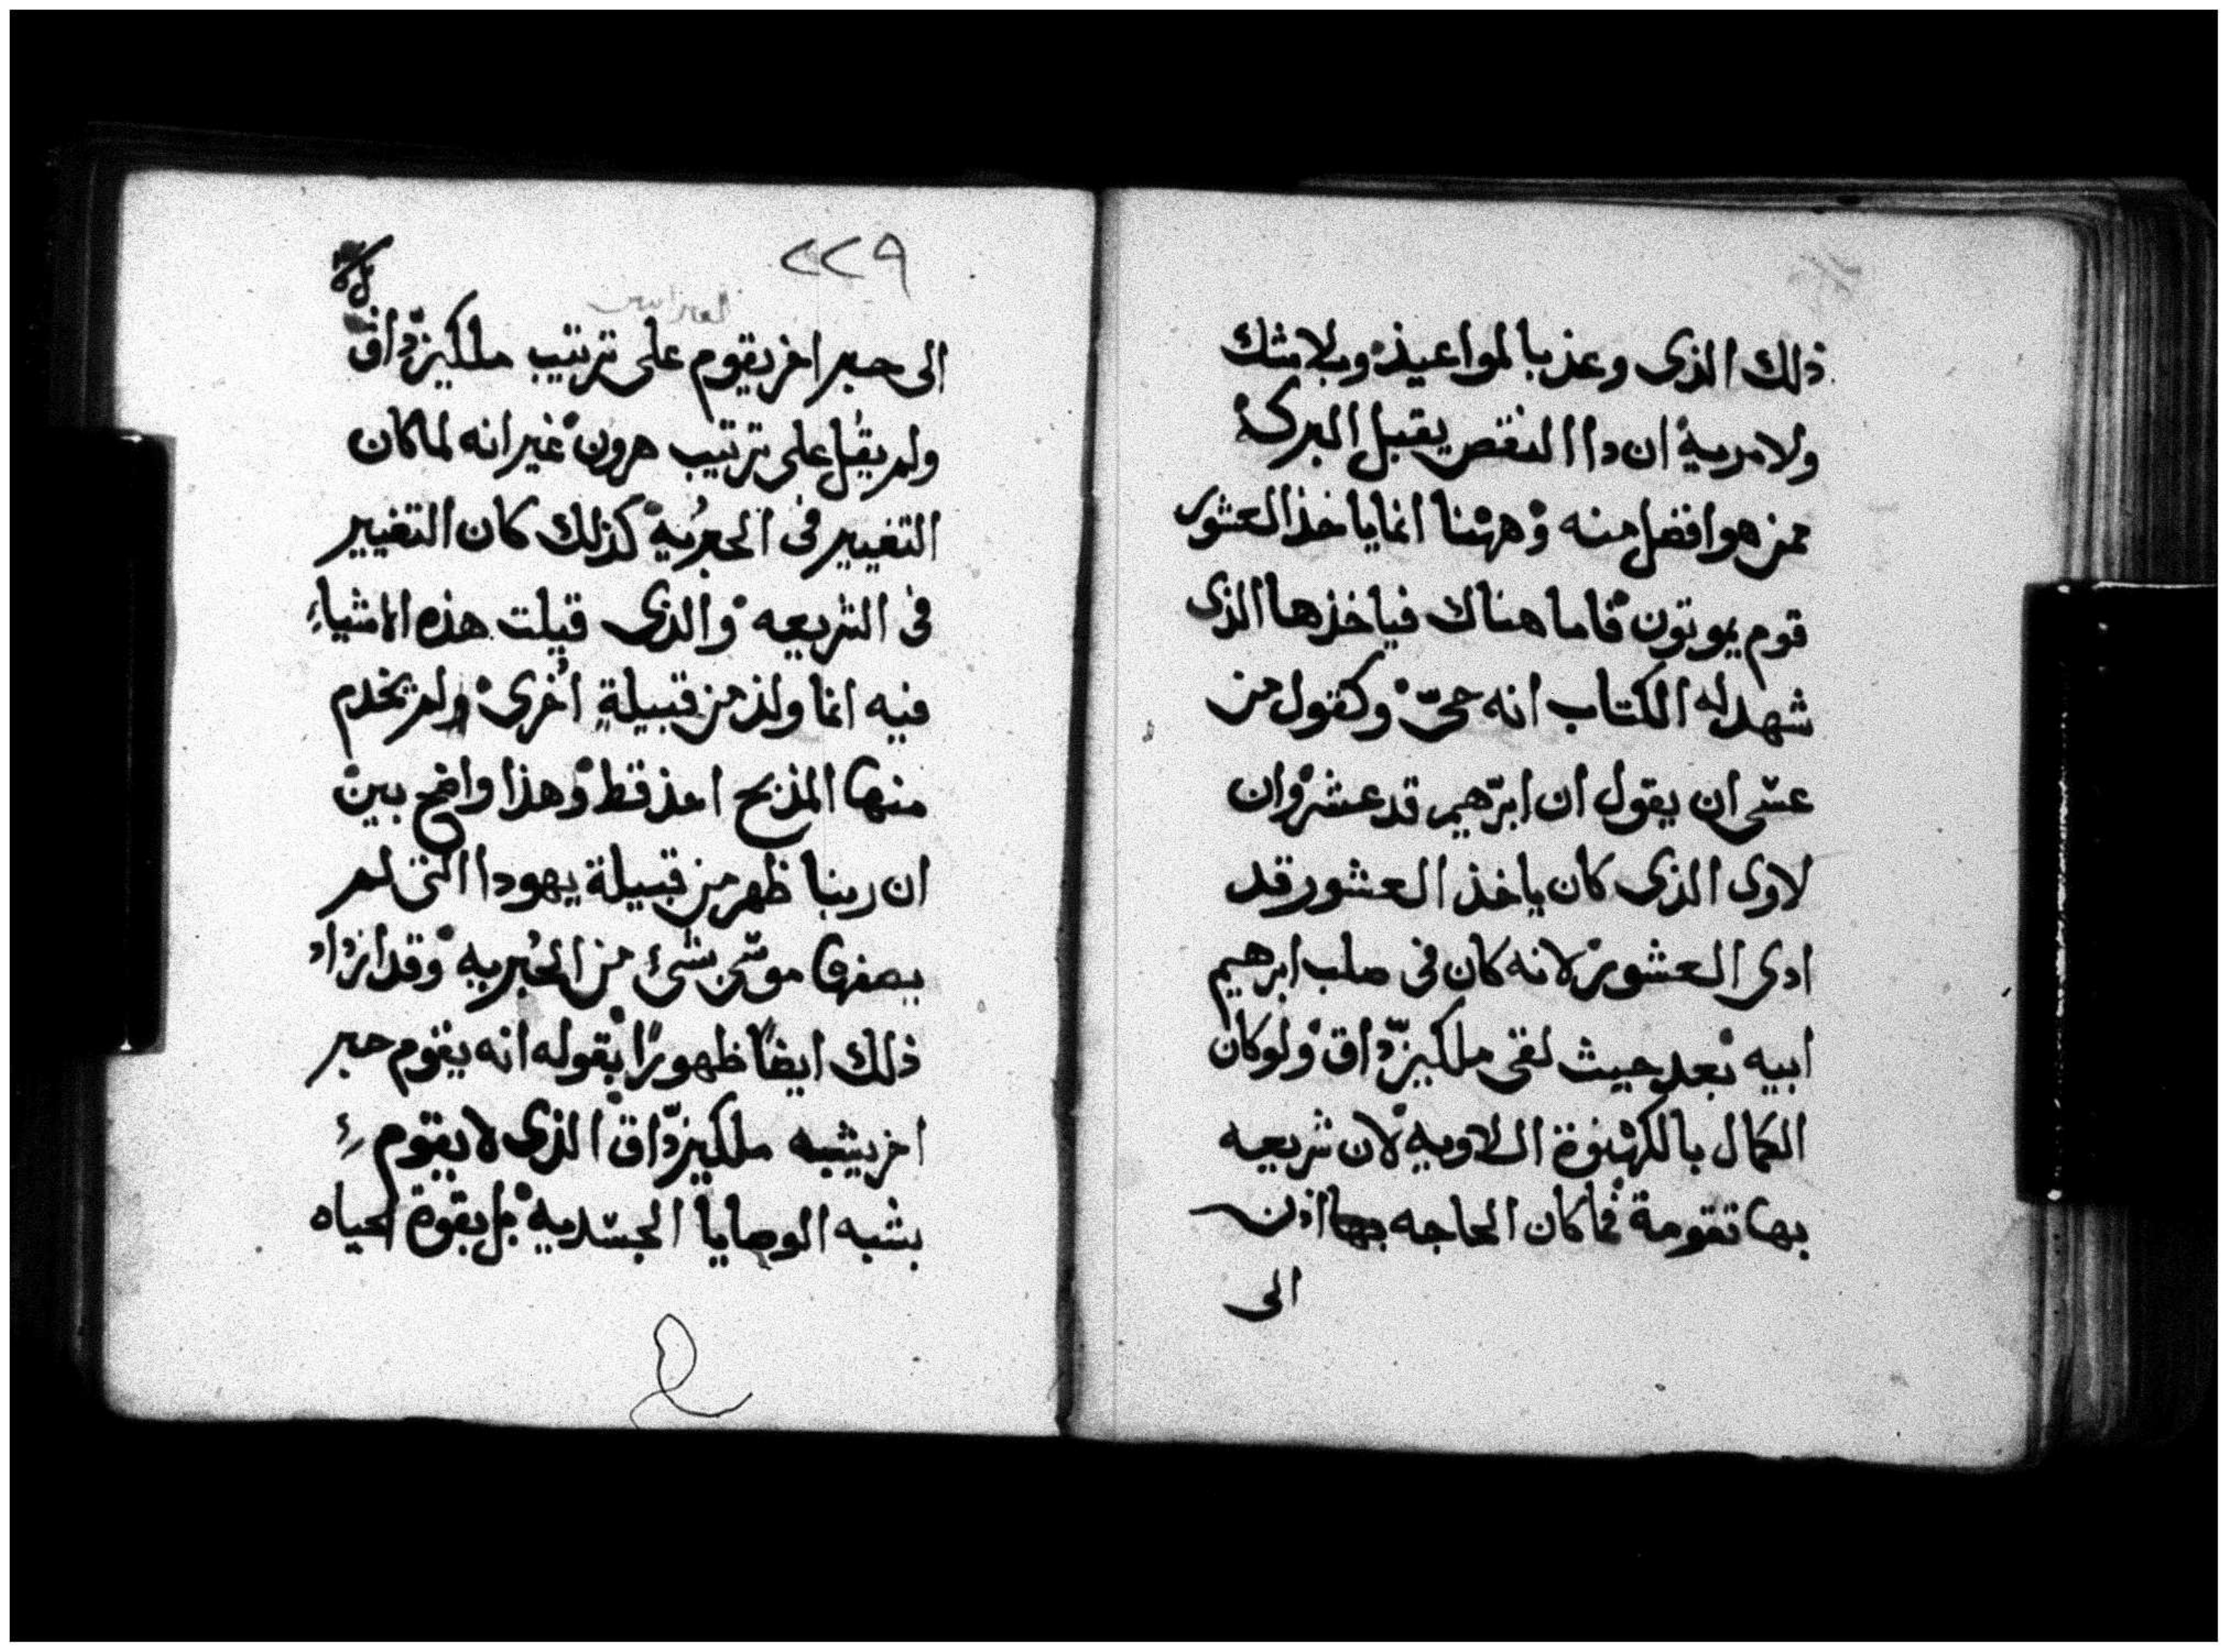 ذلك الذى وعذ بالمواعيذ وبلا شك
ولا مرية ان دا النقص يقبل البركة
ممن هو افضل منه وههنا انما ياخذ العشور
قوم يموتون فاما هناك فياخذها الذى
شهد له الكتاب انه حىّ وكقول من
عسى ان يقول ان ابرّهيم قد عشر وان
لاوى الذى كان ياخذ العشور قد
ادى العشور لانه كان فى صلب ابرهيم
ابيه بعد حيث لقى ملكيزّداق ولو كان
الكمال بالكهنوة اللاويه لان شريعيه
بها تقومة فما كان الحاجه بها اذن
الى
٢٢٩
الى حبر اخر يقوم على ترتيب ملكيزّداق
ولم يقل على ترتيب هرون غير انه لما كان
التغيير فى الحبرية كذلك كان التغيير
فى الشريعه والذى قيلت هذه الاشياء
فيه انما ولذ من قبيلةٍ اُخرى ولم يخدم
منها المذبح احذ قط وهذا واضح بين
ان ربنا ظهر من قبيلة يهودا التى لم
يصفها موسى بشئ من الحُبريه وقد ازداد
ذلك ايضًا ظهورًا بقوله انه يقوم حبر
اخر يشبه ملكيزّداق الذى لا يقوم
بشبه الوصايا الجسديه بل بقوة الحياه